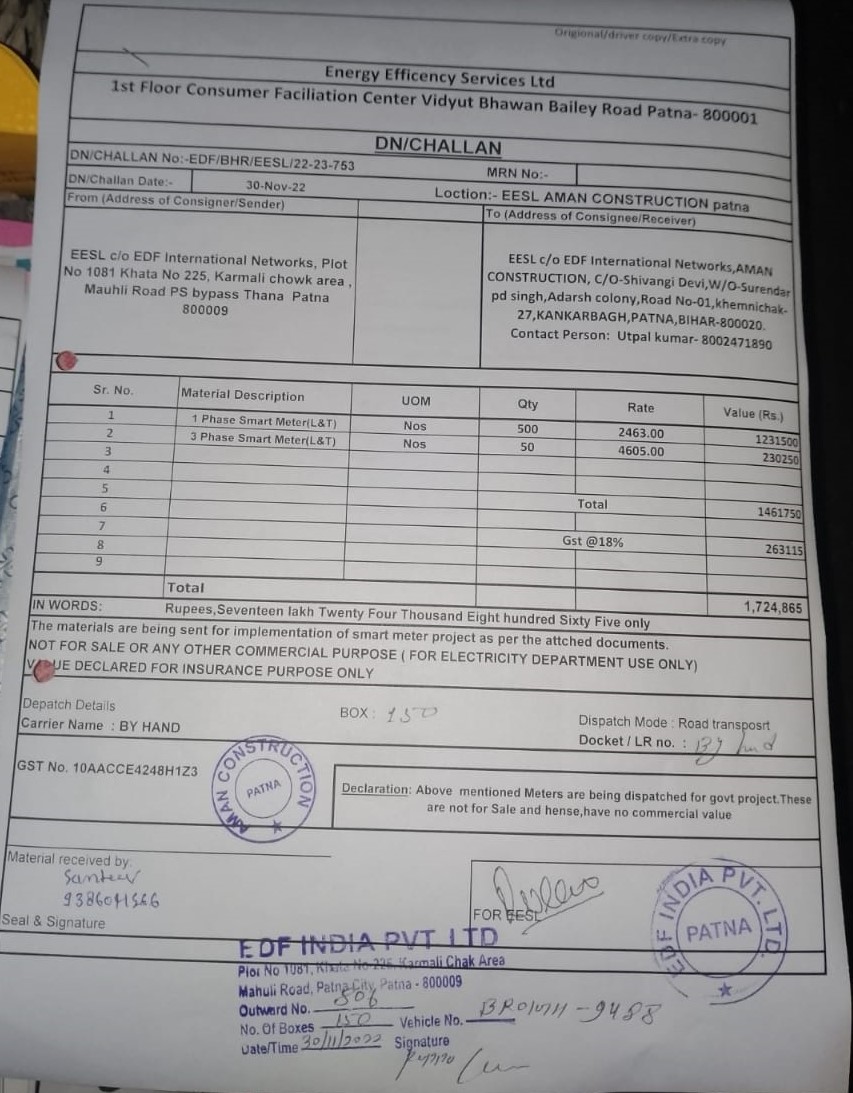 Origional/driver copy/Extra copy
Energy Efficency Services Ltd
1st Floor Consumer Faciliation Center Vidyut Bhawan Bailey Road Patna- 800001
DN/CHALLAN
DN/CHALLAN No:-EDF/BHR/EESL/22-23-753
MRN No:-
DN/Challan Date:- 30-Nov-22
Loction:- EESL AMAN CONSTRUCTION patna
From (Address of Consigner/Sender)
To (Address of Consignee/Receiver)
EESL c/o EDF International Networks, Plot
No 1081 Khata No 225, Karmali chowk area ,
Mauhli Road PS bypass Thana Patna
800009
EESL c/o EDF International Networks,AMAN
CONSTRUCTION, C/O-Shivangi Devi,W/O-Surendar
pd singh,Adarsh colony,Road No-01,khemnichak-
27,KANKARBAGH,PATNA,BIHAR-800020.
Contact Person: Utpal kumar- 8002471890
Sr. No. Material Description UOM Qty Rate Value (Rs.)
1 1 Phase Smart Meter(L&T) Nos 500 2463.00 1231500
2 3 Phase Smart Meter(L&T) Nos 50 4605.00 230250
3
4
5
6 Total 1461750
7
8 Gst @18% 263115
9
Total 1,724,865
IN WORDS: Rupees,Seventeen lakh Twenty Four Thousand Eight hundred Sixty Five only
The materials are being sent for implementation of smart meter project as per the attched documents.
NOT FOR SALE OR ANY OTHER COMMERCIAL PURPOSE ( FOR ELECTRICITY DEPARTMENT USE ONLY)
VALUE DECLARED FOR INSURANCE PURPOSE ONLY
Depatch Details
BOX : 150
Dispatch Mode : Road transposrt
Carrier Name : BY HAND
Docket / LR no. : By hand
GST No. 10AACCE4248H1Z3
AMAN CONSTRUCTION
PATNA
Declaration: Above mentioned Meters are being dispatched for govt project.These
are not for Sale and hense,have no commercial value
Material received by
Seal & Signature
FOR EESL
EDF INDIA PVT. LTD.
PATNA
EDF INDIA PVT LTD
Plot No 1081, Khata No-225, Karmali Chak Area
Mahuli Road, Patna City, Patna - 800009
Outward No. 506
No. Of Boxes 150 Vehicle No.
Date/Time 30/11/2022 Signature